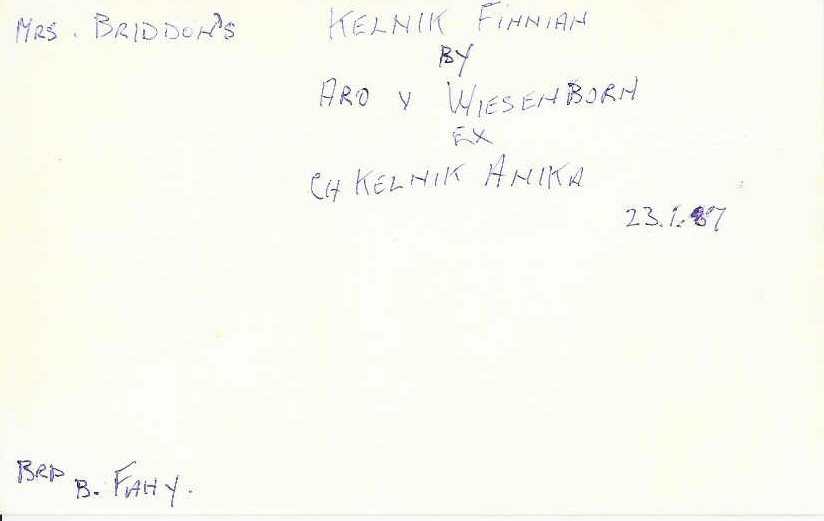 MRS. BRIDDON'S KELNIK FINNIAN
BY
ARO V WIESENBORN
EX
CH KELNIK ANIKA
23.1.87
BRD B. FAHY.